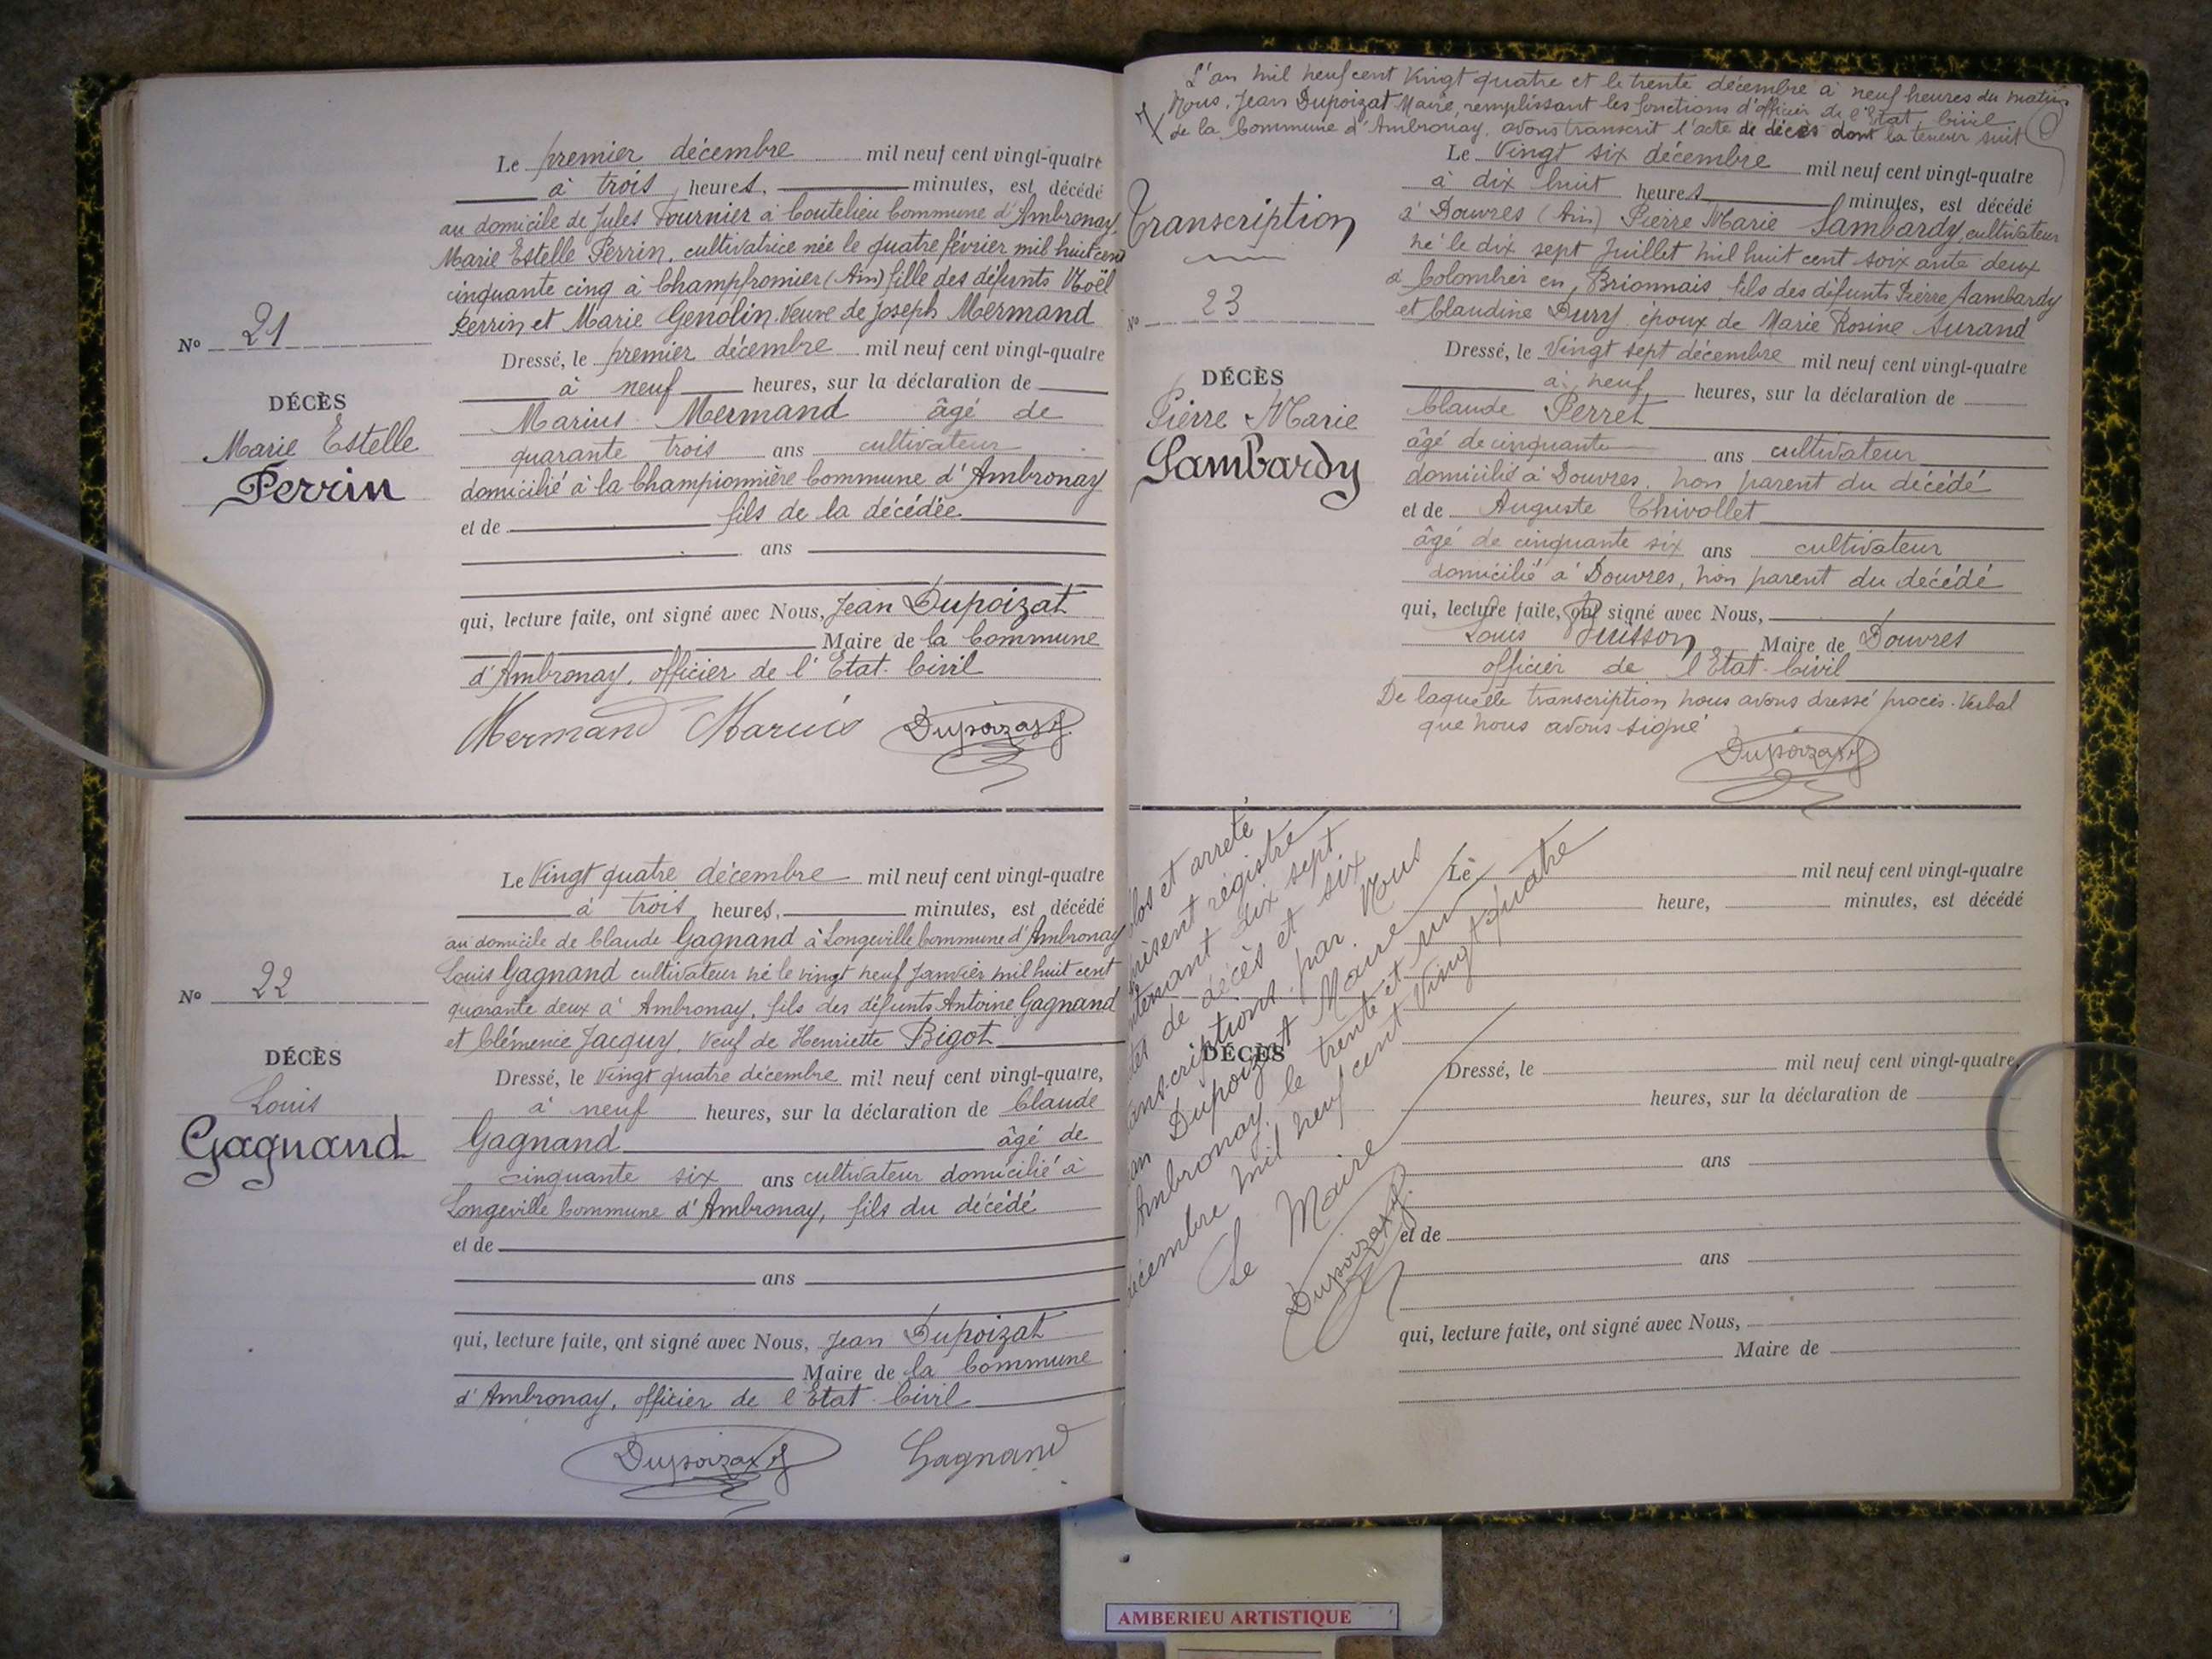 Le premier décembre mil neuf cent vingt-quatre
à trois heures, minutes, est décédé
au domicile de Jules Tournier à Coutelieu Commune d'Ambronay,
Marie Estelle Perrin, cultivatrice née le quatre février mil huit cent
cinquante cinq à Champfromier (Ain) fille des défunts Noël
Perrin et Marie Genolin. Veuve de Joseph Mermand
No 21
Dressé, le premier décembre mil neuf cent vingt-quatre
à neuf heures, sur la déclaration de
DÉCÈS
Marius Mermand âgé de
Marie Estelle
quarante trois ans cultivateur
Perrin
domicilié à la Championnière Commune d'Ambronay
et de fils de la décédée
ans
qui, lecture faite, ont signé avec Nous, Jean Dupoizat
Maire de la Commune
d'Ambronay, officier de l'Etat-Civil
Mermand Marius Dupoizat J
Le Vingt quatre décembre mil neuf cent vingt-quatre
à trois heures, minutes, est décédé
au domicile de Claude Gagnand à Longeville Commune d'Ambronay
Louis Gagnand cultivateur né le vingt neuf Janvier mil huit cent
No 22
quarante deux à Ambronay, fils des défunts Antoine Gagnand
et Clémence Jacquy. Veuf de Henriette Bigot
DÉCÈS
Dressé, le Vingt quatre décembre mil neuf cent vingt-quatre,
Louis
à neuf heures, sur la déclaration de Claude
Gagnand
Gagnand âgé de
cinquante six ans cultivateur domicilié à
Longeville Commune d'Ambronay, fils du décédé
et de
ans
qui, lecture faite, ont signé avec Nous, Jean Dupoizat
Maire de la Commune
d'Ambronay, officier de l'Etat-Civil
Dupoizat J Gagnand
L'an mil neuf cent Vingt quatre et le trente décembre à neuf heures du matin
Nous, Jean Dupoizat Maire, remplissant les fonctions d'officier de l'Etat Civil
de la Commune d'Ambronay, avons transcrit l'acte de décès dont la teneur suit
Le Vingt six décembre mil neuf cent vingt-quatre
à dix huit heures minutes, est décédé
Transcription
à Douvres (Ain) Pierre Marie Lambardy, cultivateur
né le dix sept Juillet mil huit cent soixante deux
à Colombier en Brionnais, fils des défunts Pierre Lambardy
No 23
et Claudine Dury, époux de Marie Rosine Aurand
Dressé, le Vingt sept décembre mil neuf cent vingt-quatre
DÉCÈS
à neuf heures, sur la déclaration de
Pierre Marie
Claude Perret
Lambardy
âgé de cinquante ans cultivateur
domicilié à Douvres, non parent du décédé
et de Auguste Chivollet
âgé de cinquante six ans cultivateur
domicilié à Douvres, non parent du décédé
qui, lecture faite, ont signé avec Nous,
Louis Buisson Maire de Douvres
officier de l'Etat-Civil
De laquelle transcription nous avons dressé procès-Verbal
que nous avons signé
Dupoizat J
clos et arrêté
présent régistre
ntenant dix sept
tes de décès et six
anscriptions par Nous
an Dupoizat Maire
Ambronay, le trente et un
décembre mil neuf cent Vingt quatre
Le Maire
Dupoizat J
Le mil neuf cent vingt-quatre
heure, minutes, est décédé
DÉCÈS
Dressé, le mil neuf cent vingt-quatre,
heures, sur la déclaration de
ans
et de
ans
qui, lecture faite, ont signé avec Nous,
Maire de
AMBERIEU ARTISTIQUE